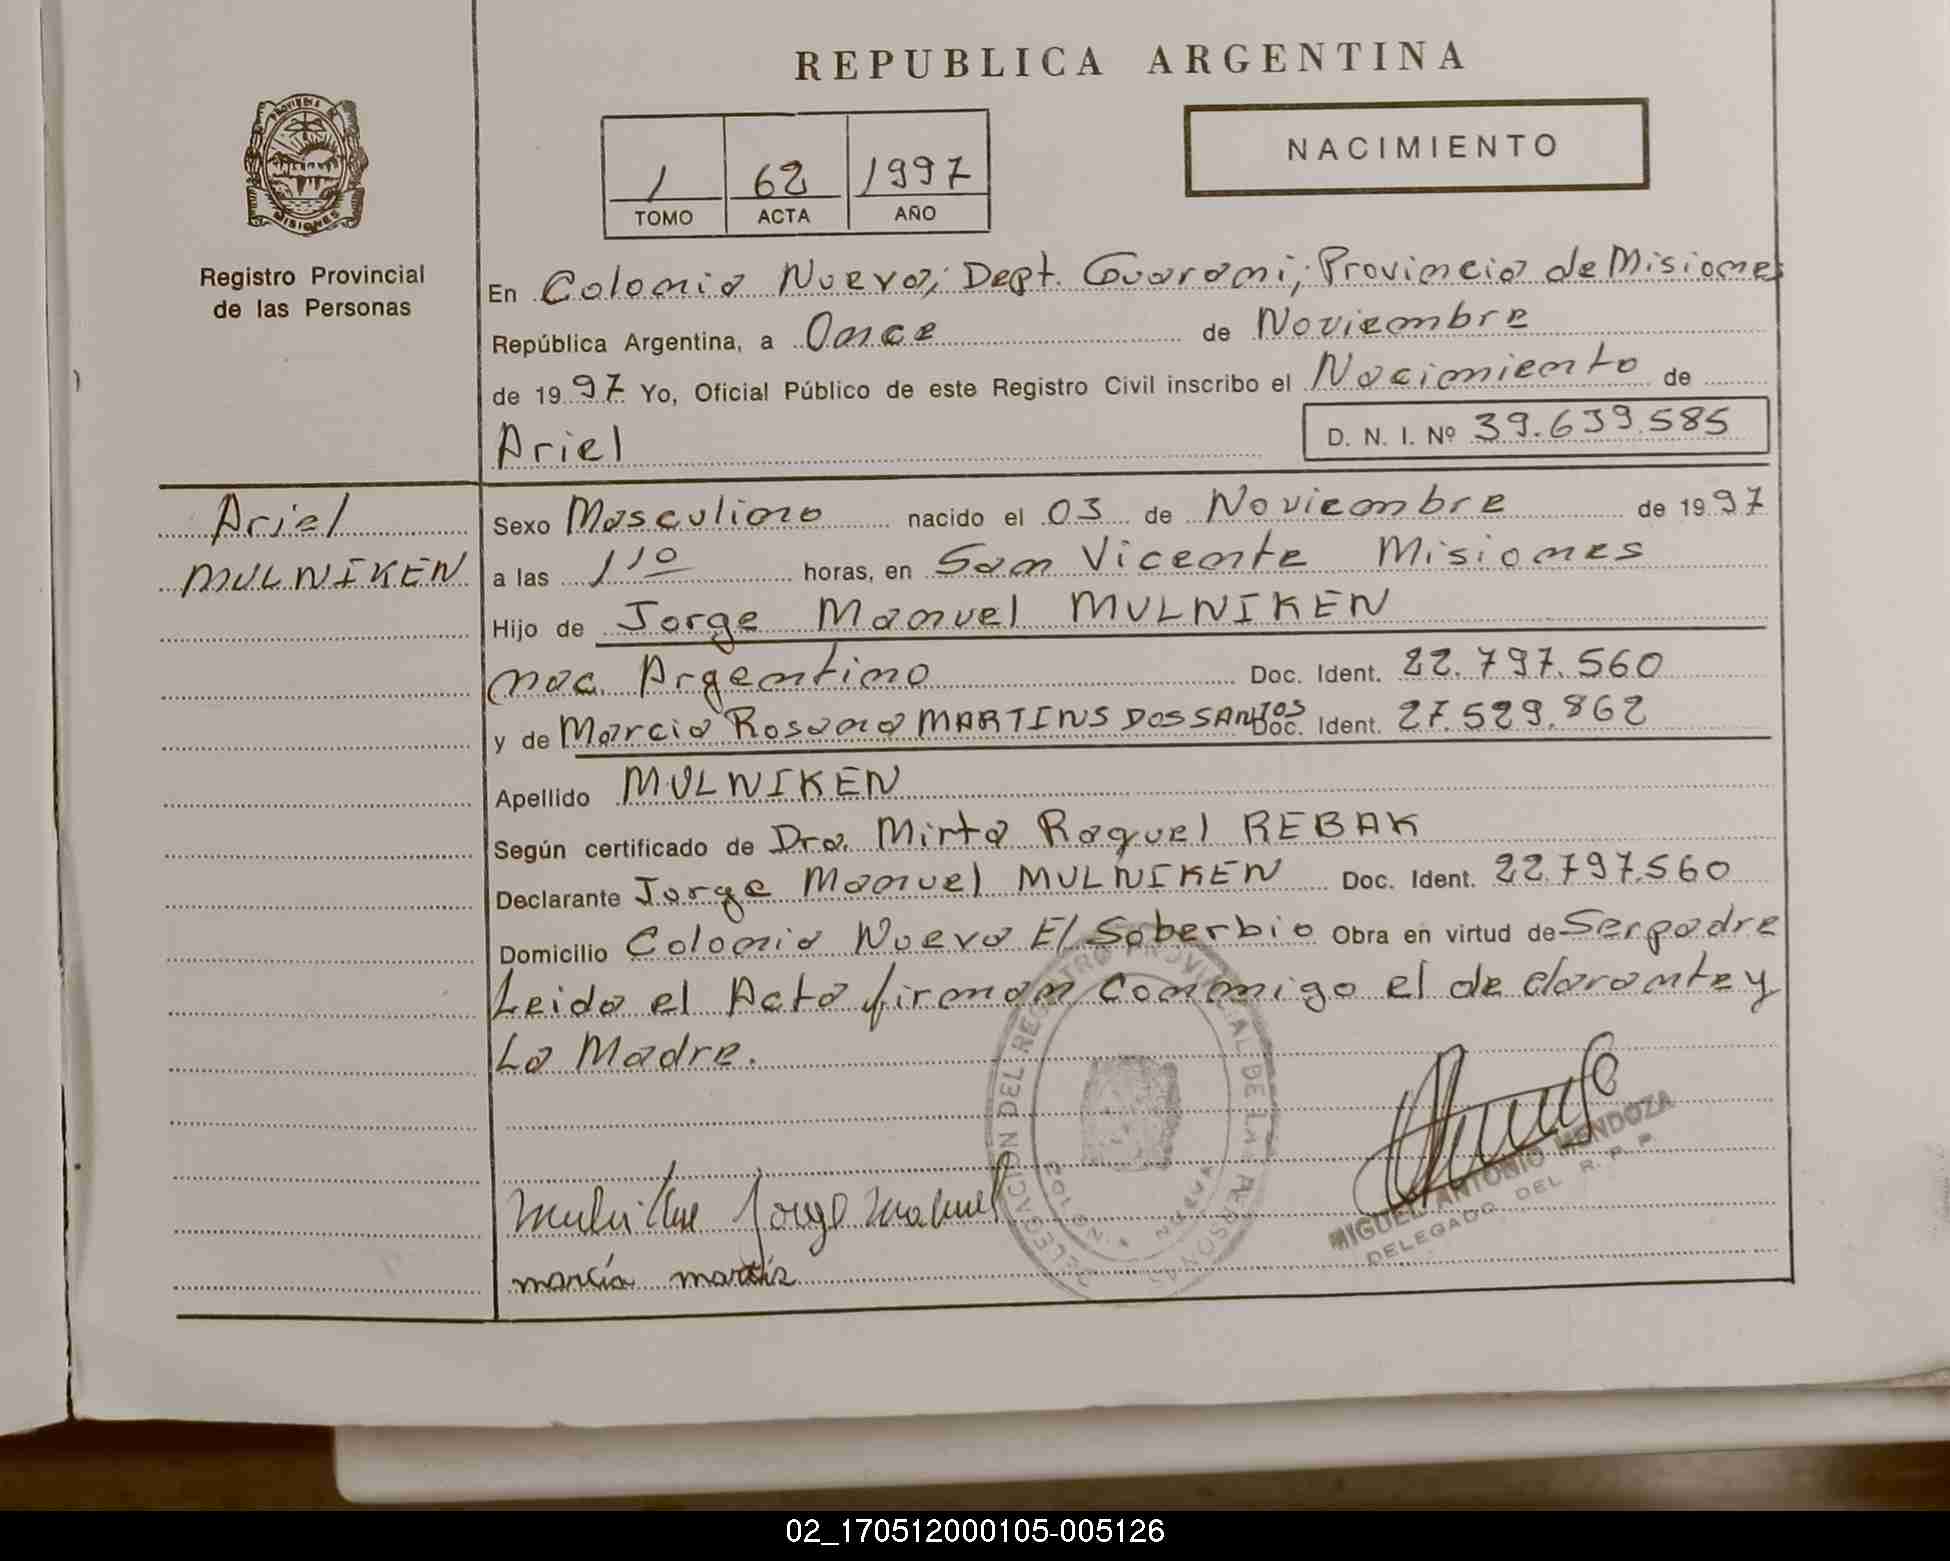 REPUBLICA ARGENTINA
PROVINCIA DE
MISIONES
Registro Provincial
de las Personas
1 62 1997
TOMO ACTA AÑO
NACIMIENTO
En Colonia Nueva, Dept. Guarani, Provincia de Misiones
República Argentina, a Once de Noviembre
de 1997 Yo, Oficial Público de este Registro Civil inscribo el Nacimiento de
Ariel D. N. I. Nº 39.639.585
Ariel
MULNIKEN
Sexo Masculino nacido el 03 de Noviembre de 1997
a las 11º horas, en San Vicente Misiones
Hijo de Jorge Manuel MULNIKEN
nac. Argentino Doc. Ident. 22.797.560
y de Marcia Rosana MARTINS DOS SANTOS Doc. Ident. 27.529.862
Apellido MULNIKEN
Según certificado de Dra. Mirta Raquel REBAK
Declarante Jorge Manuel MULNIKEN Doc. Ident. 22.797.560
Domicilio Colonia Nueva El Soberbio Obra en virtud de Ser padre
Leida el Acta firman conmigo el declarante y
La Madre.
DELEGACION DEL REGISTRO PROVINCIAL DE LAS PERSONAS
COLONIA NUEVA
Mulniken Jorge Manuel
MIGUEL ANTONIO MENDOZA
DELEGADO DEL R. P. P.
marcia
02_170512000105-005126